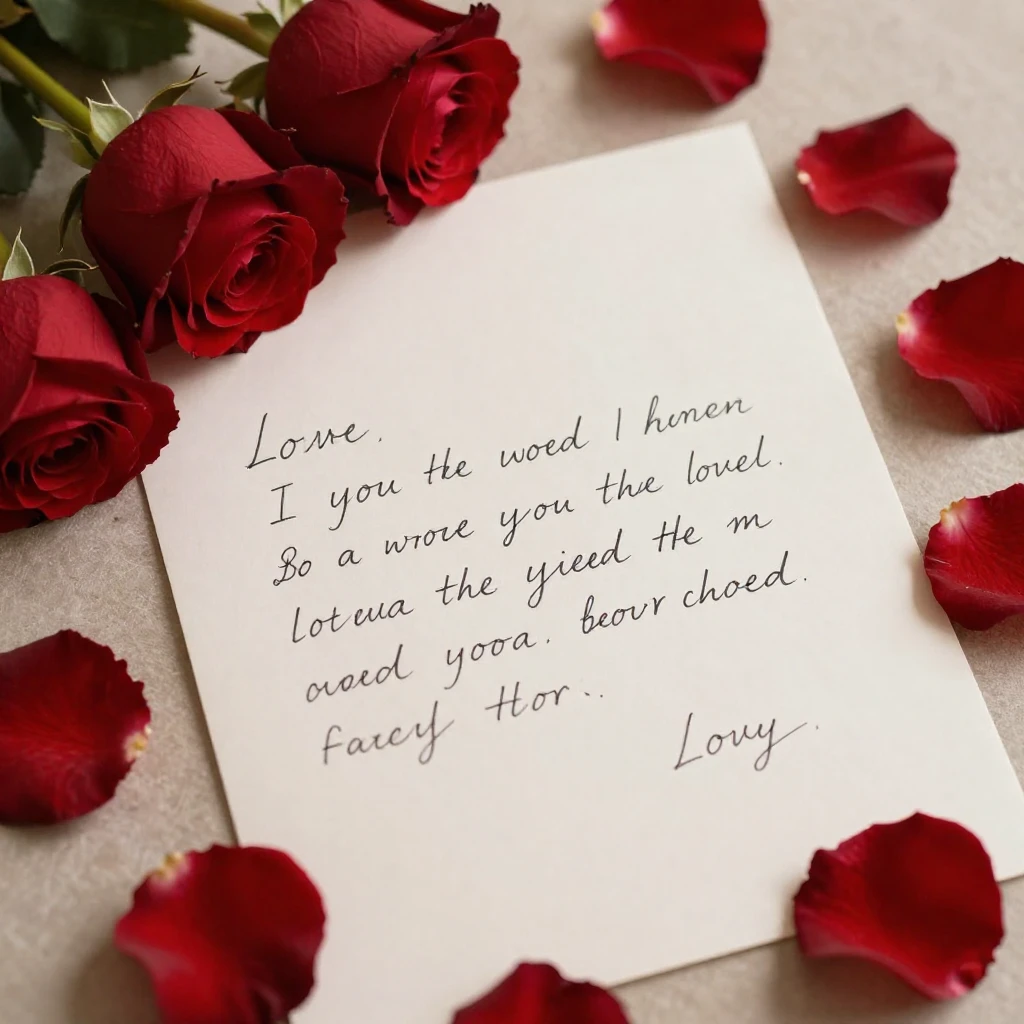 Losve.
I you the woed I humen
Bo a wrove you the lovel.
loteua the yieed the m
ovoed yooa. beovr choed.
farcef Hor..
Lovy.